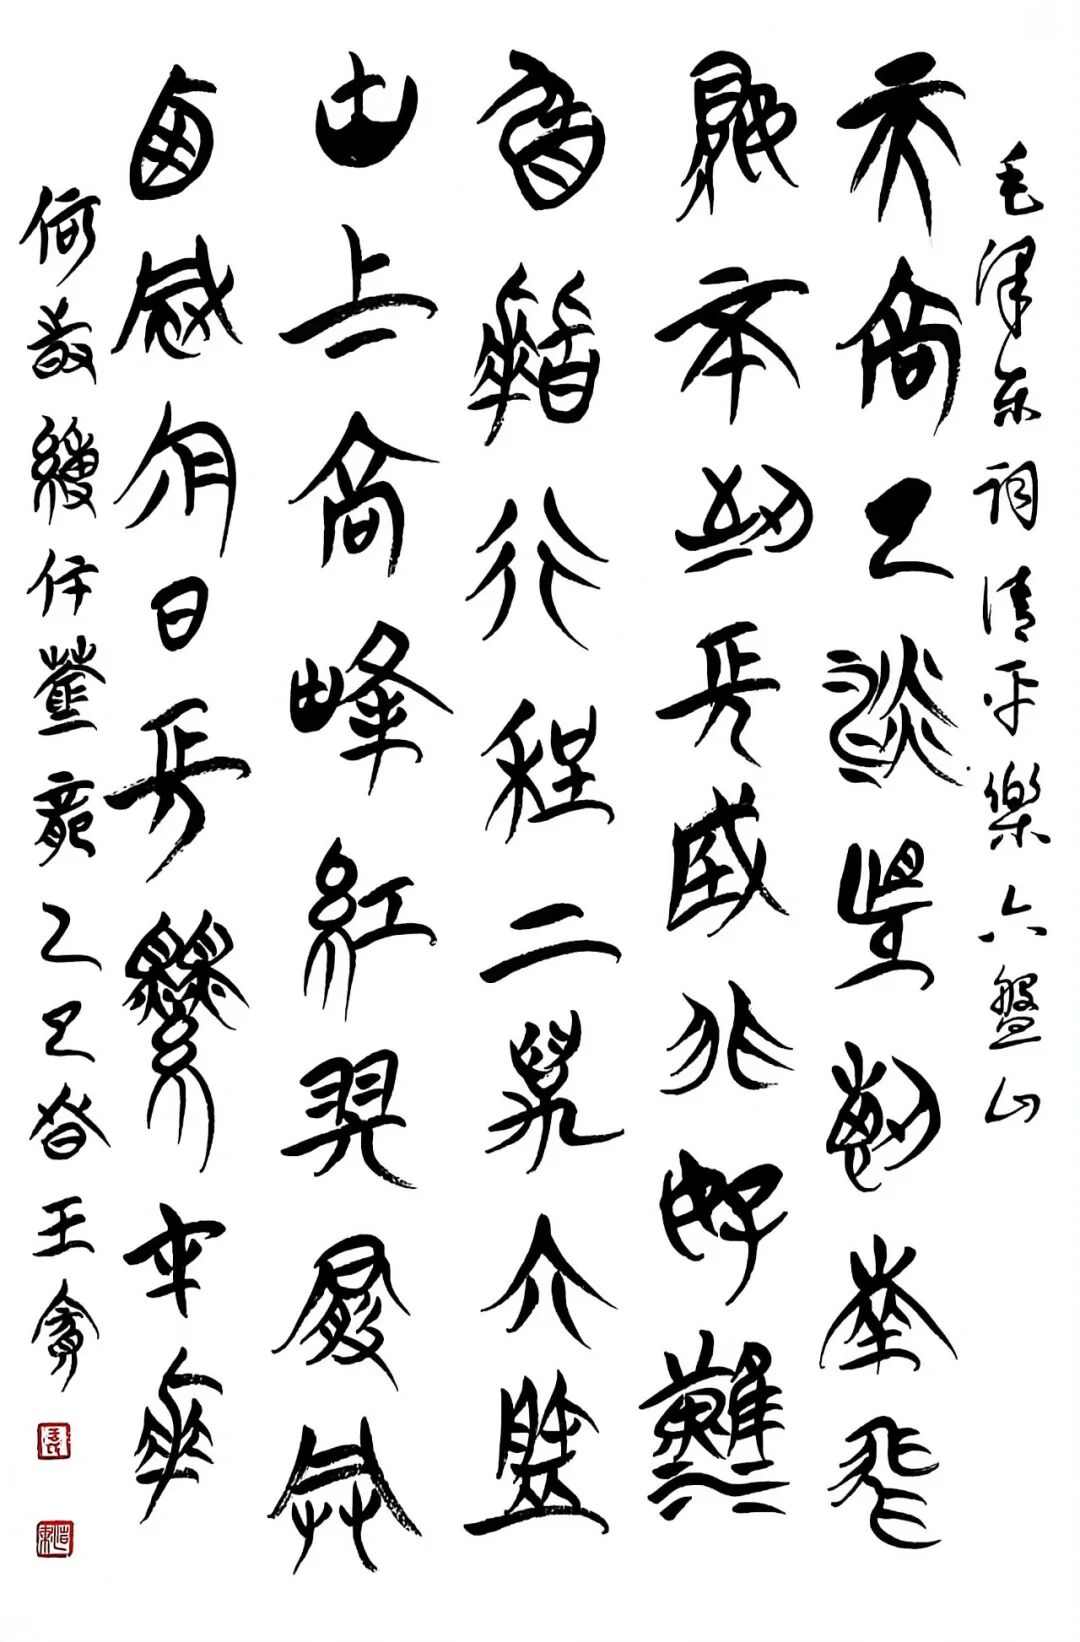 毛澤东词清平樂六盤山
天高云淡望斷南飛
雁不到長城非好漢
屈指行程二萬六盤
山上高峰紅旗漫卷
西風今日長纓在手
何時縛住蒼龍乙巳春王